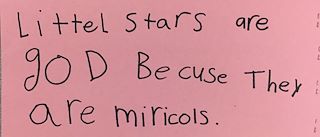 Littel stars are
gOD Becuse They
are miricols.